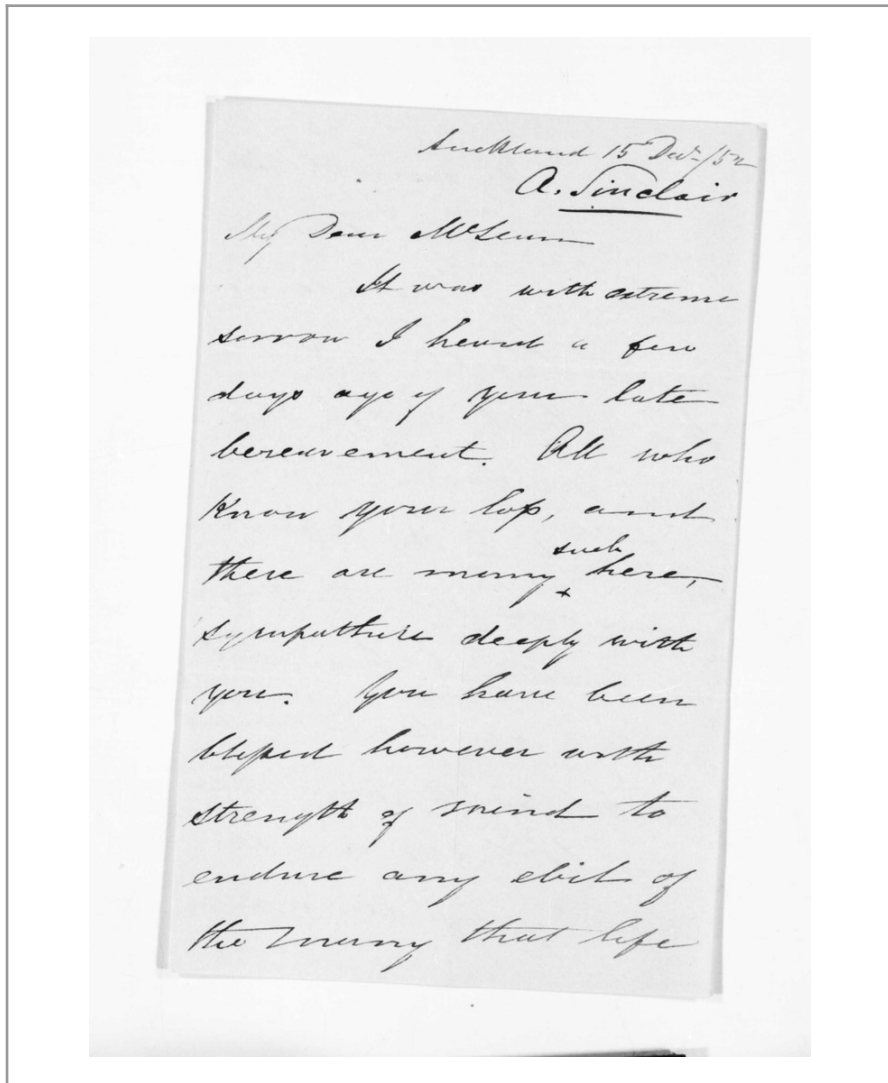 Auckland 15 Decr /52
A. Sinclair
My Dear McLean
It was with extreme
sorrow I heard a few
days ago of your late
bereavement. All who
know your loss, and
there are many such here,
sympathise deeply with
you. You have been
blessed however with
strength of mind to
endure any evil of
the many that life